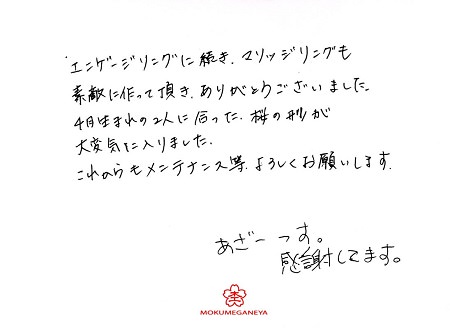 エンゲージリングに続き、マリッジリングも
素敵に作って頂き、ありがとうございました。
4月生まれの2人に合った、桜の形が
大変気に入りました。
これからもメンテナンス等、よろしくお願いします。
あざーっす。
感謝してます。
MOKUMEGANEYA